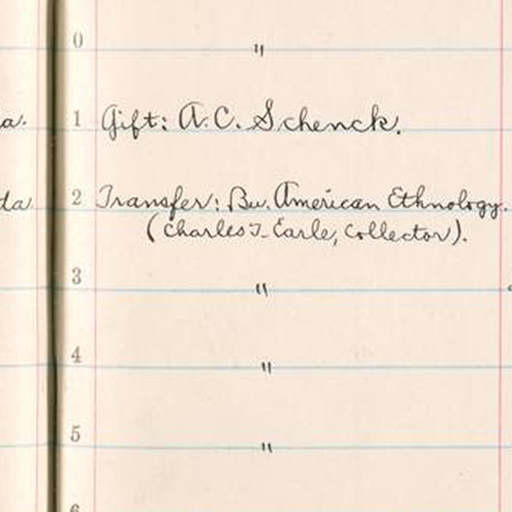 0 "
a. 1 Gift: A.C. Schenck.
da 2 Transfer: Bu. American Ethnology.
(Charles T. Earle, Collector).
3 "
4 "
5 "
6